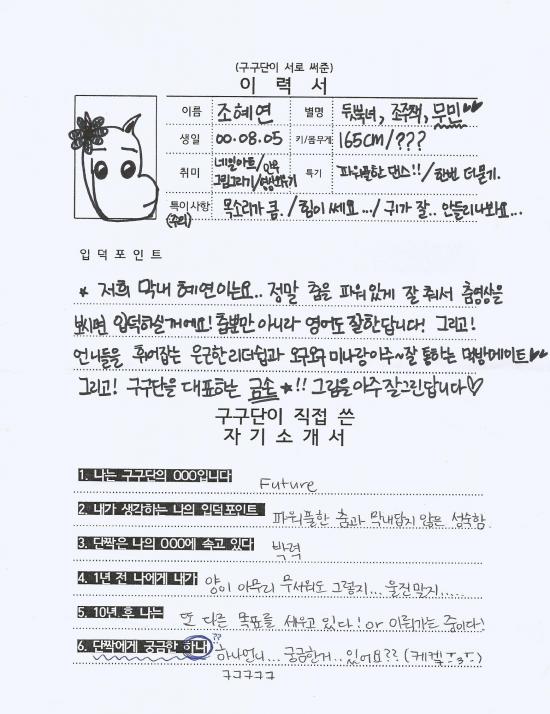 (구구단이 서로 써준)
이 력 서
이름 조혜연 별명 뒷북녀, 조주책, 무민♥♥
생일 00.08.05 키/몸무게 165cm/???
취미 네일아트/이모 그림그리기/영상보기 특기 파워풀한 댄스!!/한번 더 묻기.
특이사항 (주의) 목소리가 큼./힘이 쎄요.../귀가 잘.. 안들리나봐요...
입덕포인트
* 저희 막내 혜연이는요.. 정말 춤을 파워있게 잘 춰서 춤영상을
보시면 입덕하실거에요! 춤뿐만 아니라 영어도 잘한답니다! 그리고!
언니들을 휘어잡는 은근한 리더쉽과 오구오구 미나랑 아주~잘 통하는 먹방메이트♥♥
그리고! 구구단을 대표하는 금손★!! 그림을 아주 잘그린답니다♡
구구단이 직접 쓴
자기소개서
1. 나는 구구단의 OOO입니다 Future
2. 내가 생각하는 나의 입덕포인트 파워풀한 춤과 막내답지 않은 성숙함
3. 단짝은 나의 OOO에 속고 있다 박력
4. 1년 전 나에게 내가 양이 아무리 무서워도 그렇지... 울진말지.....
5. 10년 후 나는 또 다른 목표를 세우고 있다! or 이뤄가는 중이다!
6. 단짝에게 궁금한 하나 ?? 하나언니... 궁금한거... 있어요?? (케켈 ㅜ3ㅜ)
ㅋㅋㅋㅋㅋ